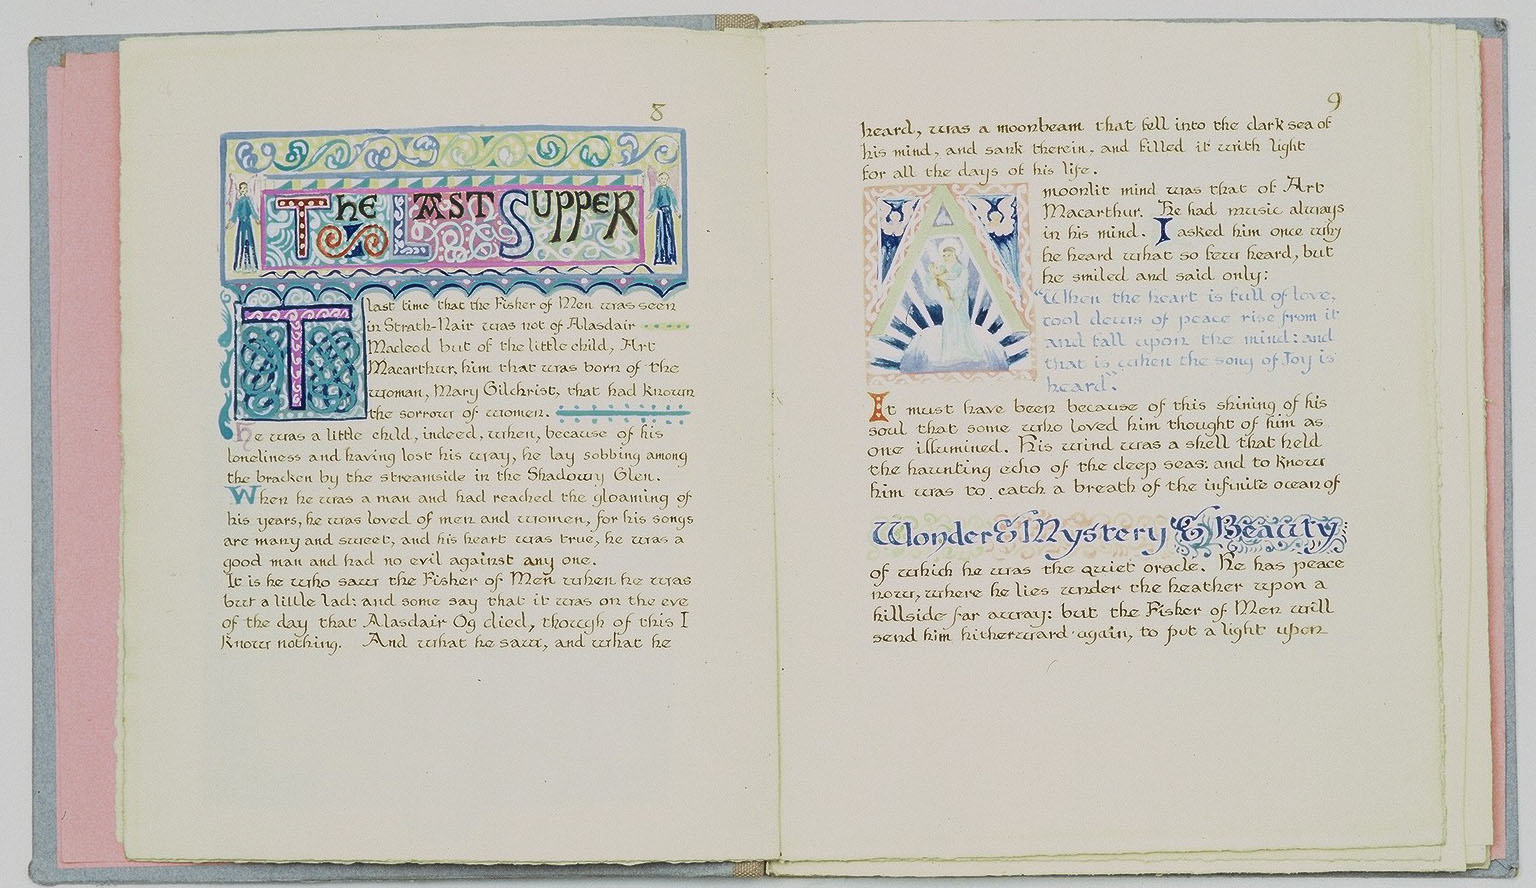 8
The Last Supper
T last time that the Fisher of Men was seen
in Strath-Nair was not of Alasdair
Macleod but of the little child, Art
Macarthur, him that was born of the
woman, Mary Gilchrist, that had known
the sorrow of women.
He was a little child, indeed, when, because of his
loneliness and having lost his way, he lay sobbing among
the bracken by the streamside in the Shadowy Glen.
When he was a man and had reached the gloaming of
his years, he was loved of men and women, for his songs
are many and sweet, and his heart was true, he was a
good man and had no evil against any one.
It is he who saw the Fisher of Men when he was
but a little lad: and some say that it was on the eve
of the day that Alasdair Og died, though of this I
know nothing. And what he saw, and what he
9
heard, was a moonbeam that fell into the dark sea of
his mind, and sank therein, and filled it with light
for all the days of his life.
A moonlit mind was that of Art
Macarthur. He had music always
in his mind. I asked him once why
he heard what so few heard, but
he smiled and said only:
"When the heart is full of love,
cool dews of peace rise from it
and fall upon the mind: and
that is when the song of Joy is
heard".
It must have been because of this shining of his
soul that some who loved him thought of him as
one illumined. His wind was a shell that held
the haunting echo of the deep seas: and to know
him was to catch a breath of the infinite ocean of
Wonder & Mystery & Beauty
of which he was the quiet oracle. He has peace
now, where he lies under the heather upon a
hillside far away: but the Fisher of Men will
send him hitherward again, to put a light upon